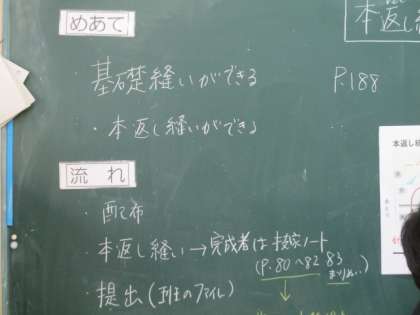 めあて
本返し
・基礎縫いができる P.188
・本返し縫いができる
本返し縫
流れ
・配布
・本返し縫い→完成者は技家ノート
(P.80~82 83
まつりぬい)
・提出(班のファイル)